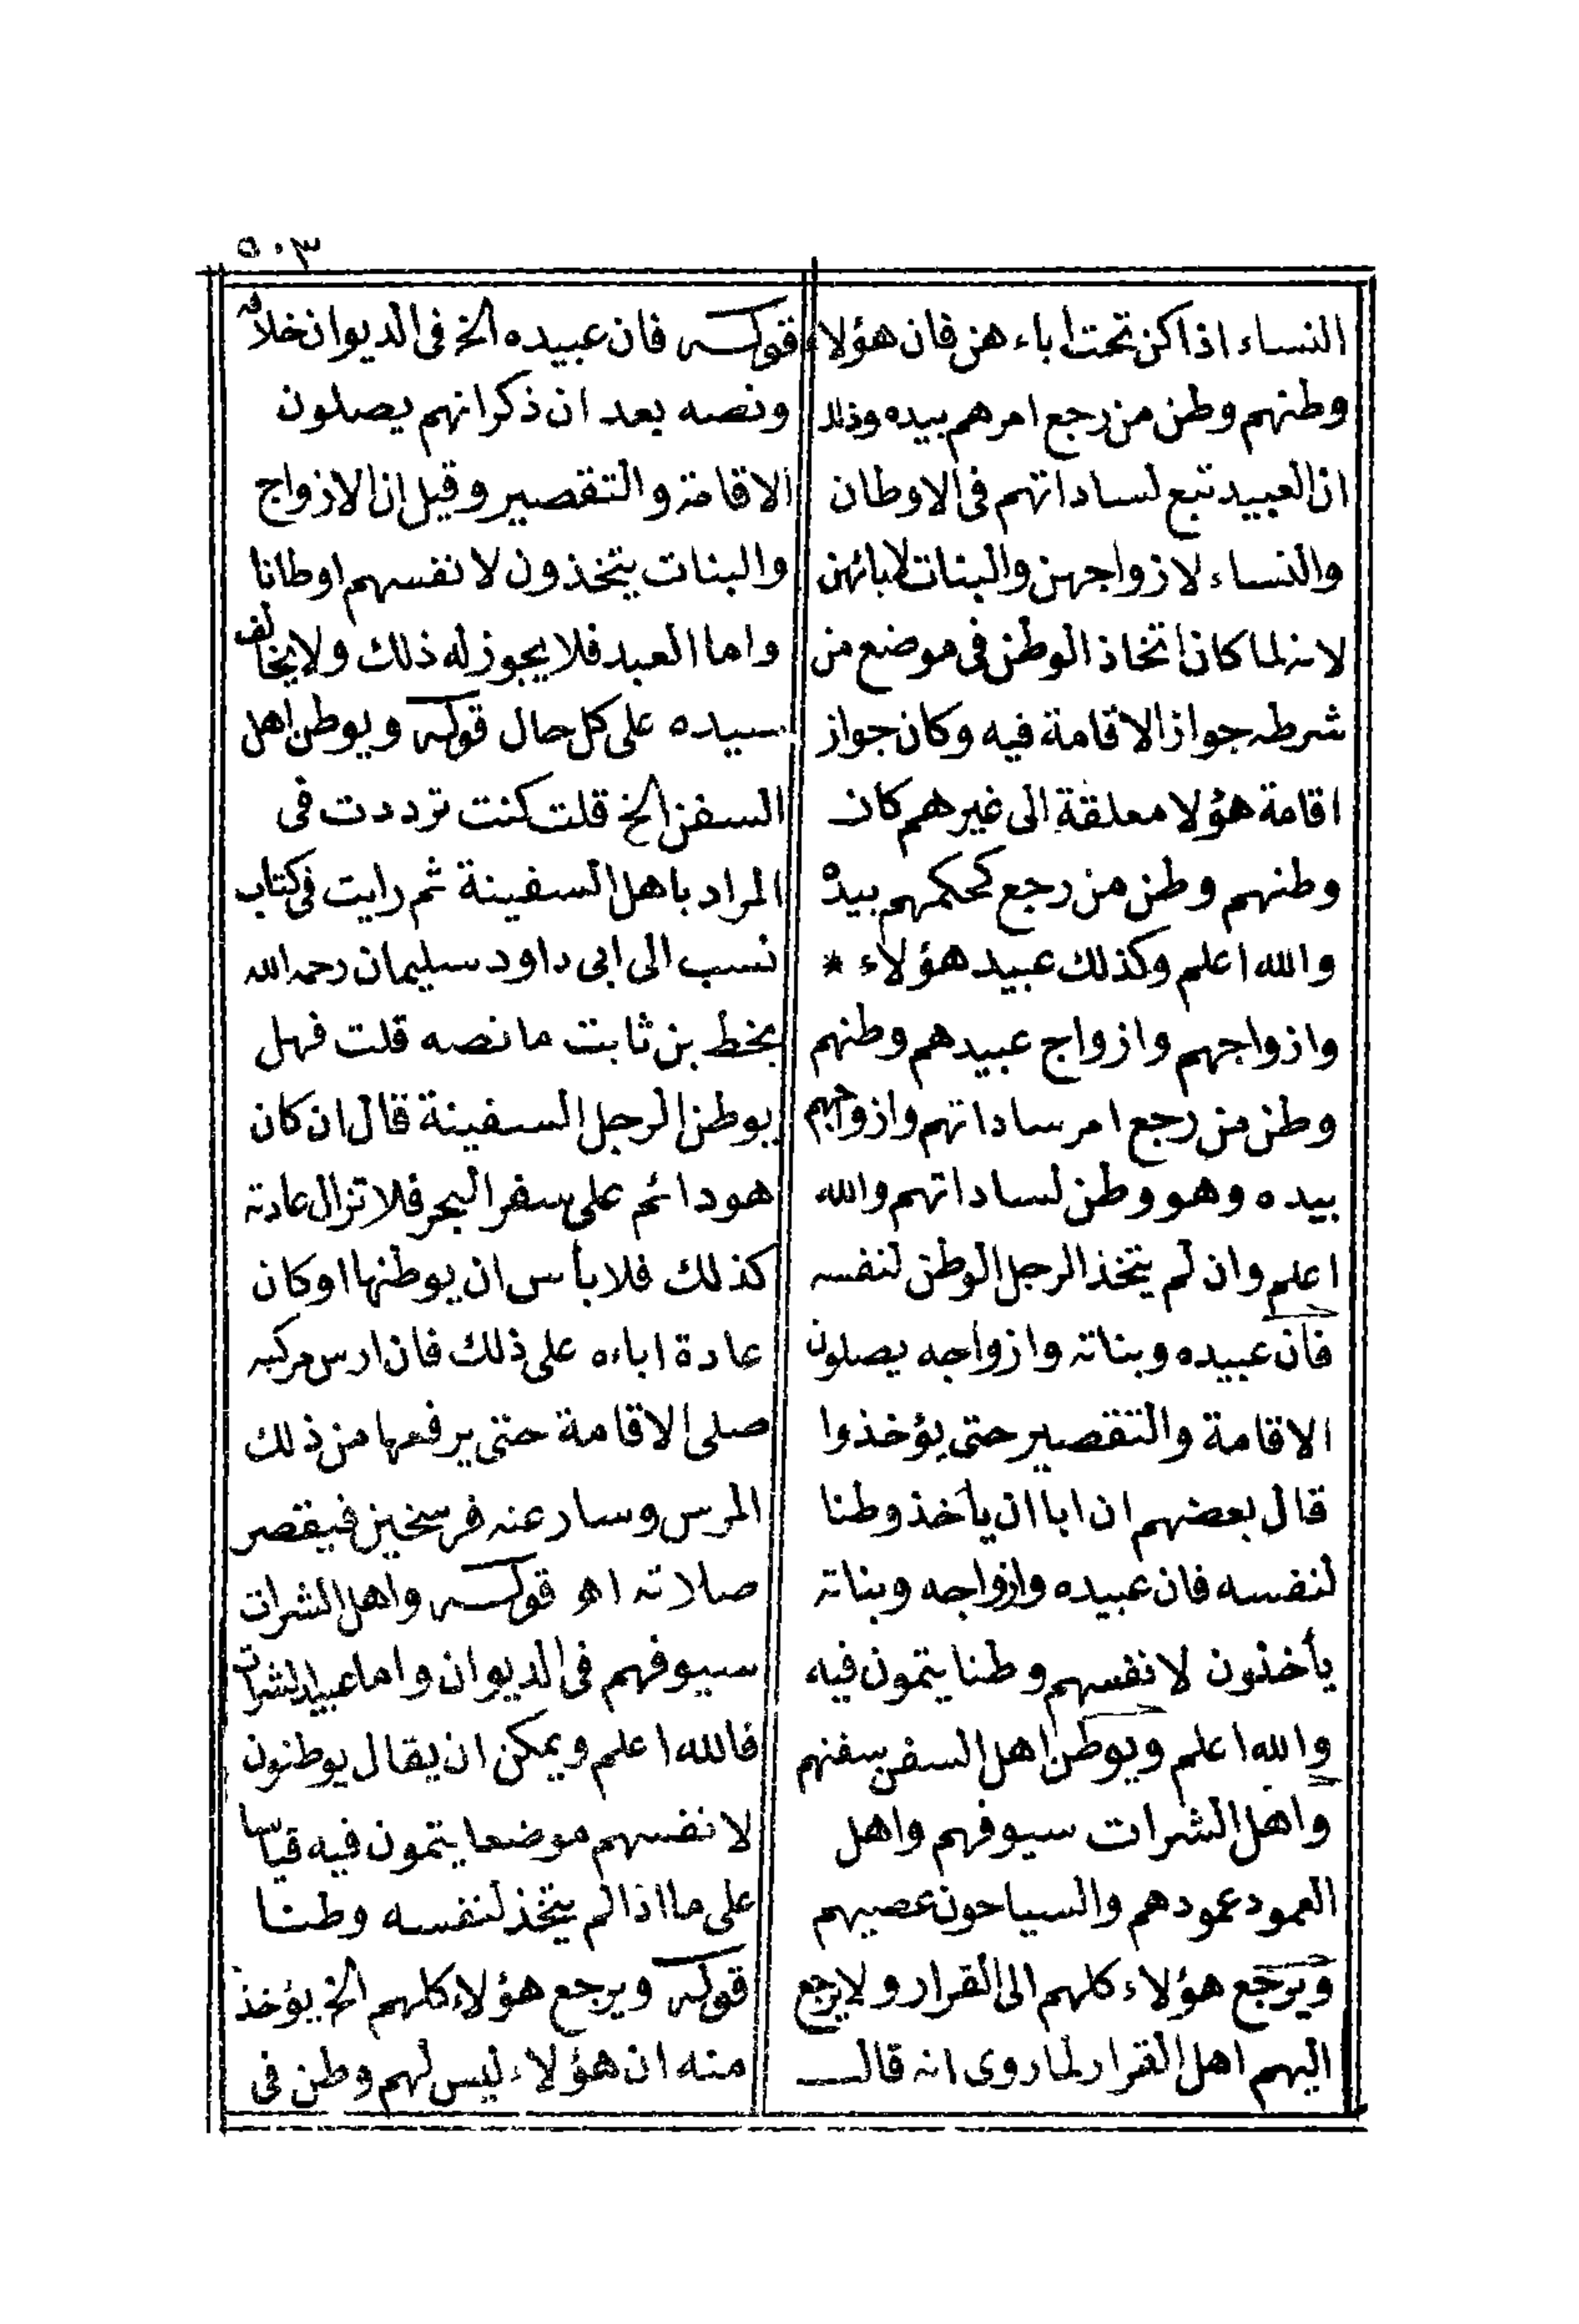 ٥٠٣
النساء اذا كن تحت اباء هن فان هؤلاء
وطنهم وطن من رجع امرهم بيده وذلك
ان العبيد تبع لساداتهم فى الاوطان
والنساء لازواجهن والبنات لابائهن
لانه لما كان اتخاذ الوطن فى موضع من
شرطه جواز الاقامة فيه وكان جواز
اقامة هؤلا معلقة الى غيرهم كان
وطنهم وطن من رجع حكمهم بيده
والله اعلم وكذلك عبيد هؤلاء *
وازواجهم وازواج عبيدهم وطنهم
وطن من رجع امر ساداتهم وازواجهم
بيده وهو وطن لساداتهم والله
اعلم وان لم يتخذ الرجل الوطن لنفسه
فان عبيده وبناته وازواجه يصلون
الاقامة والتقصير حتى يؤخذوا
قال بعضهم ان ابا ان يأخذ وطنا
لنفسه فان عبيده وازواجه وبناته
يأخذون لانفسهم وطنا يتمون فيه
والله اعلم ويوطن اهل السفن سفنهم
واهل الشرات سيوفهم واهل
العمود عمودهم والسياحون عصيهم
ويرجع هؤلاء كلهم الى القرار ولا يرجع
اليهم اهل القرار لما روى انه قال
قوله فان عبيده الخ فى الديوان خلافه
ونصه بعد ان ذكر انهم يصلون
الاقامة والتقصير وقيل ان الازواج
والبنات يتخذون لانفسهم اوطانا
واما العبد فلا يجوز له ذلك ولا يخالف
سيده على كل حال قوله ويوطن اهل
السفن الخ قلت كنت ترددت فى
المراد باهل السفينة ثم رايت فى كتاب
نسب الى ابى داود سليمان رحمه الله
بخط بن ثابت ما نصه قلت فهل
يوطن الرجل السفينة قال ان كان
هو دائم على سفر البحر فلا تزال عادته
كذلك فلا بأس ان يوطنها او كان
عادة اباءه على ذلك فان ارس مركبه
صلى الاقامة حتى يرفعها من ذلك
المرس وسار عنه فرسخين فيقصر
صلاته اهو قوله واهل الشرات
سيوفهم فى الديوان واما عبيد الشرات
فالله اعلم ويمكن ان يقال يوطنون
لانفسهم موضعا يتمون فيه قياسا
على ما اذا لم يتخذ لنفسه وطنا
قوله ويرجع هؤلاء كلهم الخ يؤخذ
منه ان هؤلاء ليس لهم وطن فى